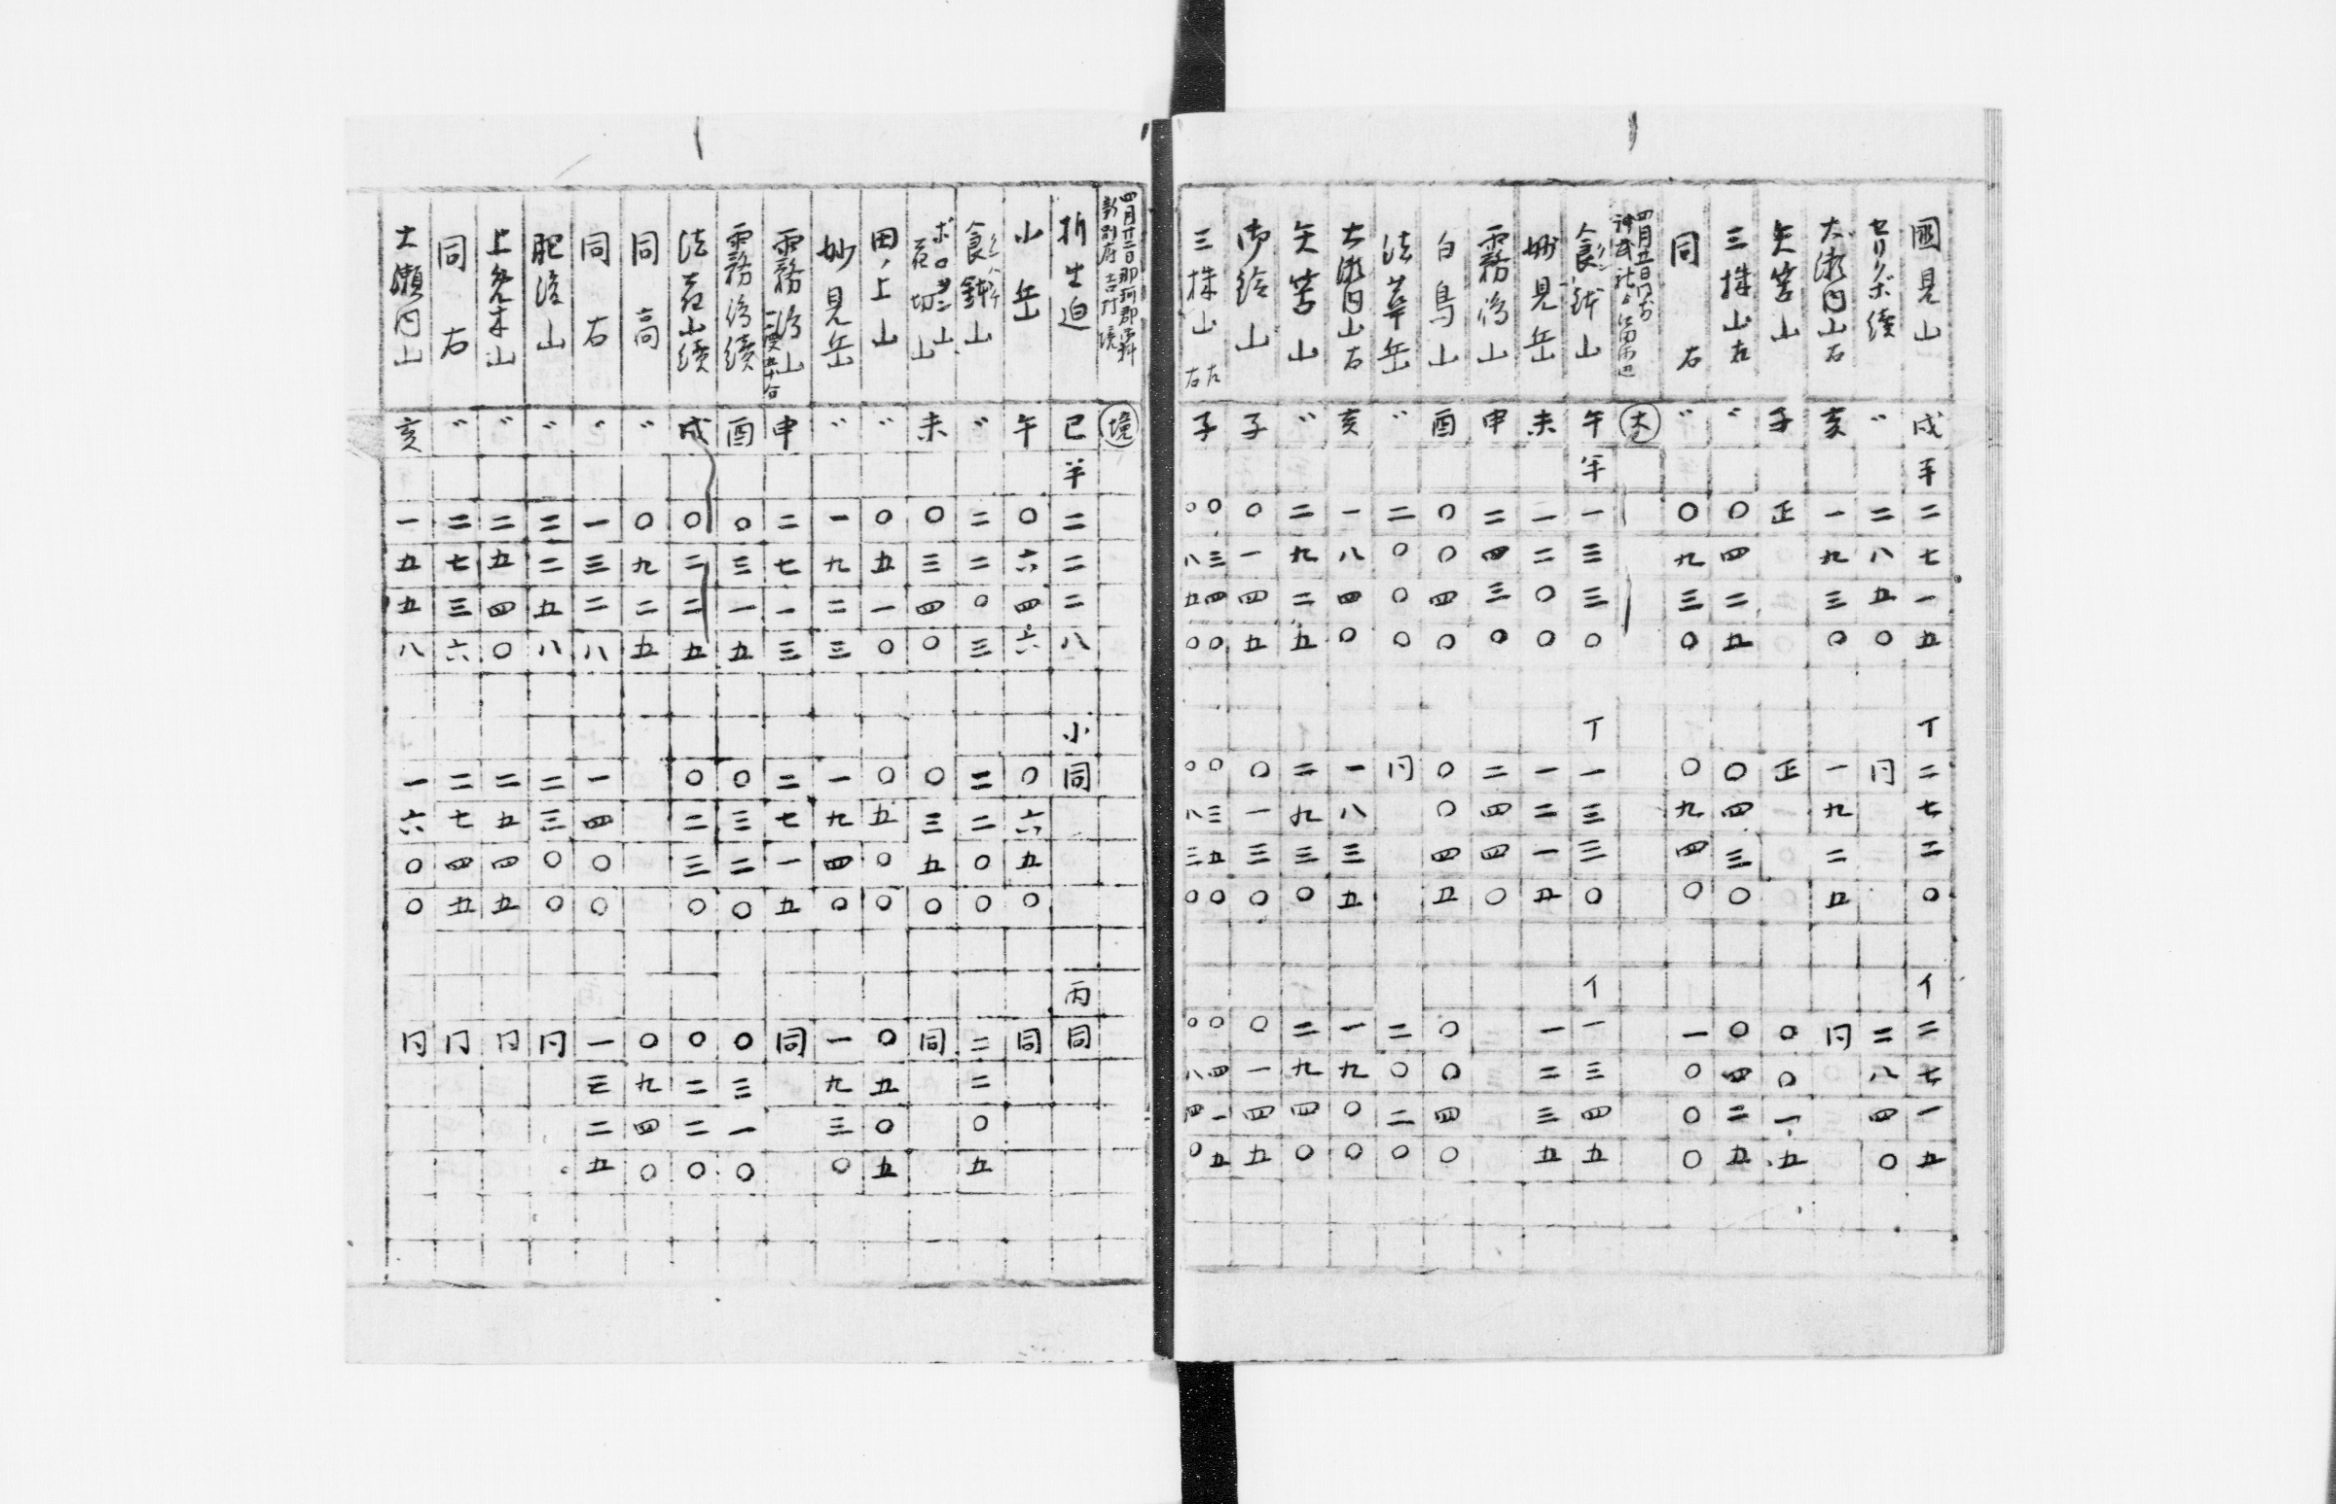 國見山 戌 半 二七一五 丁 二七二〇 イ 二七一五
セリクボ續 〃 二八五〇 円 二八四〇
大瀬内山右 亥 一九三〇 一九二五 円
矢筈山 子 正 正 〇〇一五
三株山左 〃 〇四二五 〇四三〇 〇四二五
同右 〃 〇九三〇 〇九四〇 一〇〇〇
山 午 半 一三三〇 丁 一三三〇 イ 一三四五
妙見岳 未 一二〇〇 一二一五 一二三五
霧嶋山 申 二四三〇 二四四〇
白鳥山 酉 〇〇四〇 〇〇四五 〇〇四〇
法華岳 〃 二〇〇〇 円 二〇二〇
大瀬内山右 亥 一八四〇 一八三五 一九〇〇
矢筈山 〃 二九二五 二九三〇 二九四〇
山 子 〇一四五 〇一三〇 〇一四五
三株山 左 子 〇三四〇 〇三五〇 〇四一五
右 〇八五〇 〇八三〇 〇八四〇
四月廿二日那珂郡 境
折生迫 巳 半 二二二八 小 同 丙 同
小岳 午 〇六四六 〇六五〇 同
山 〃 二二〇三 二二〇〇 二二〇五
山 未 〇三四〇 〇三五〇 同
田ノ上山 〃 〇五一〇 〇五〇〇 〇五〇五
妙見岳 〃 一九二三 一九四〇 一九三〇
霧嶋山 申 二七一三 二七一五 同
霧嶋續 酉 〇三一五 〇三二〇 〇三一〇
法花山續 戌 〇二二五 〇二三〇 〇二二〇
同高 〃 〇九二五 〇九四〇
同右 〃 一三二八 一四〇〇 一三二五
肥後山 〃 二二五八 二三〇〇 円
上免木山 〃 二五四〇 二五四五 円
同右 〃 二七三六 二七四五 円
大瀬内山 亥 一五五八 一六〇〇 円